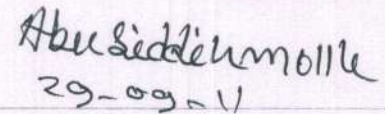 Abu Siddik Molla
29-09-11